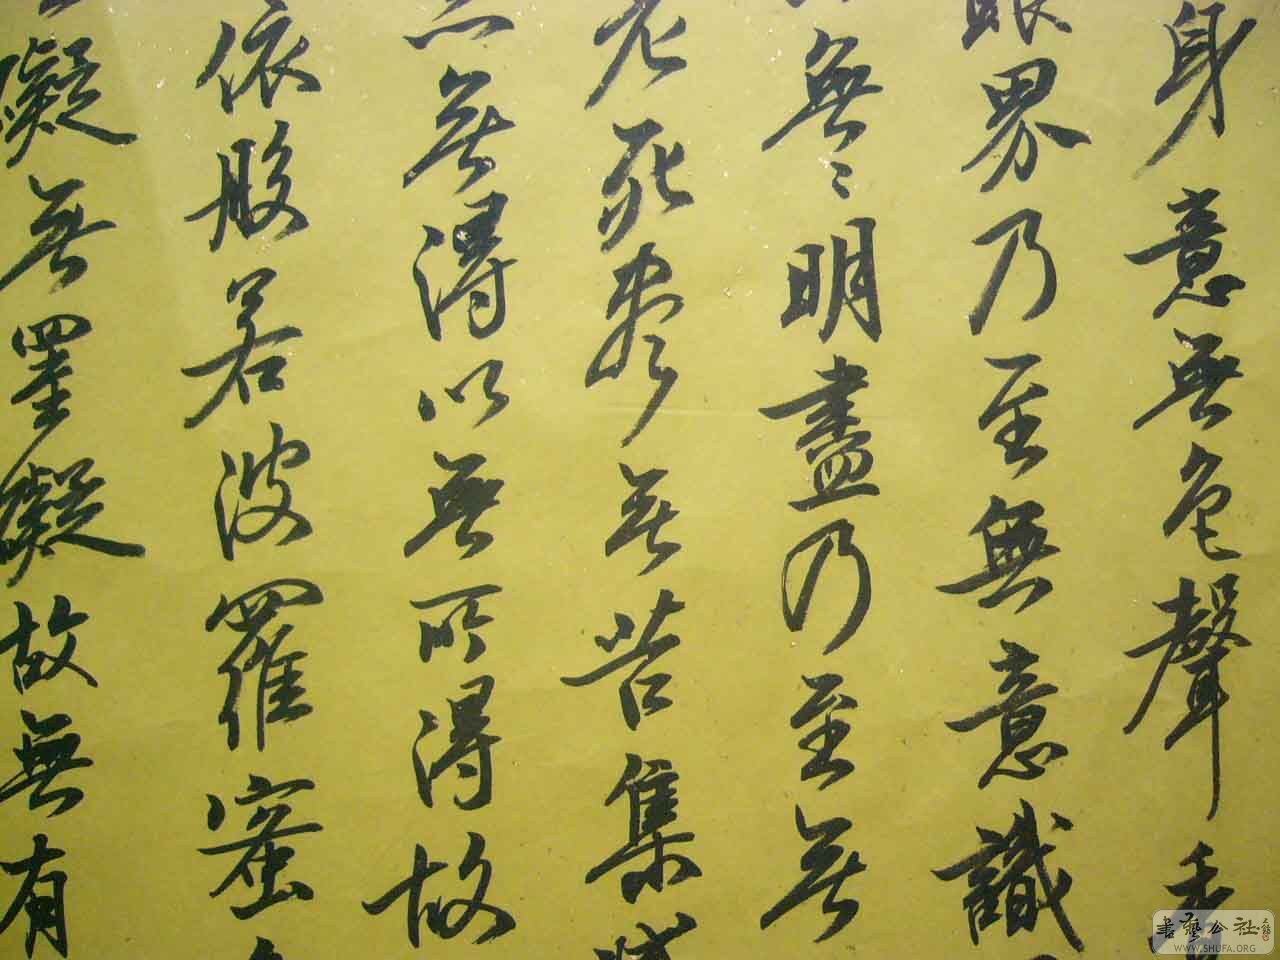 身意無色聲香
眼界乃至無意識
無〻明盡乃至無
老死盡無苦集滅
無得以無所得故
依般若波羅蜜
礙無罣礙故無有
書藝公社
WWW.SHUFA.ORG